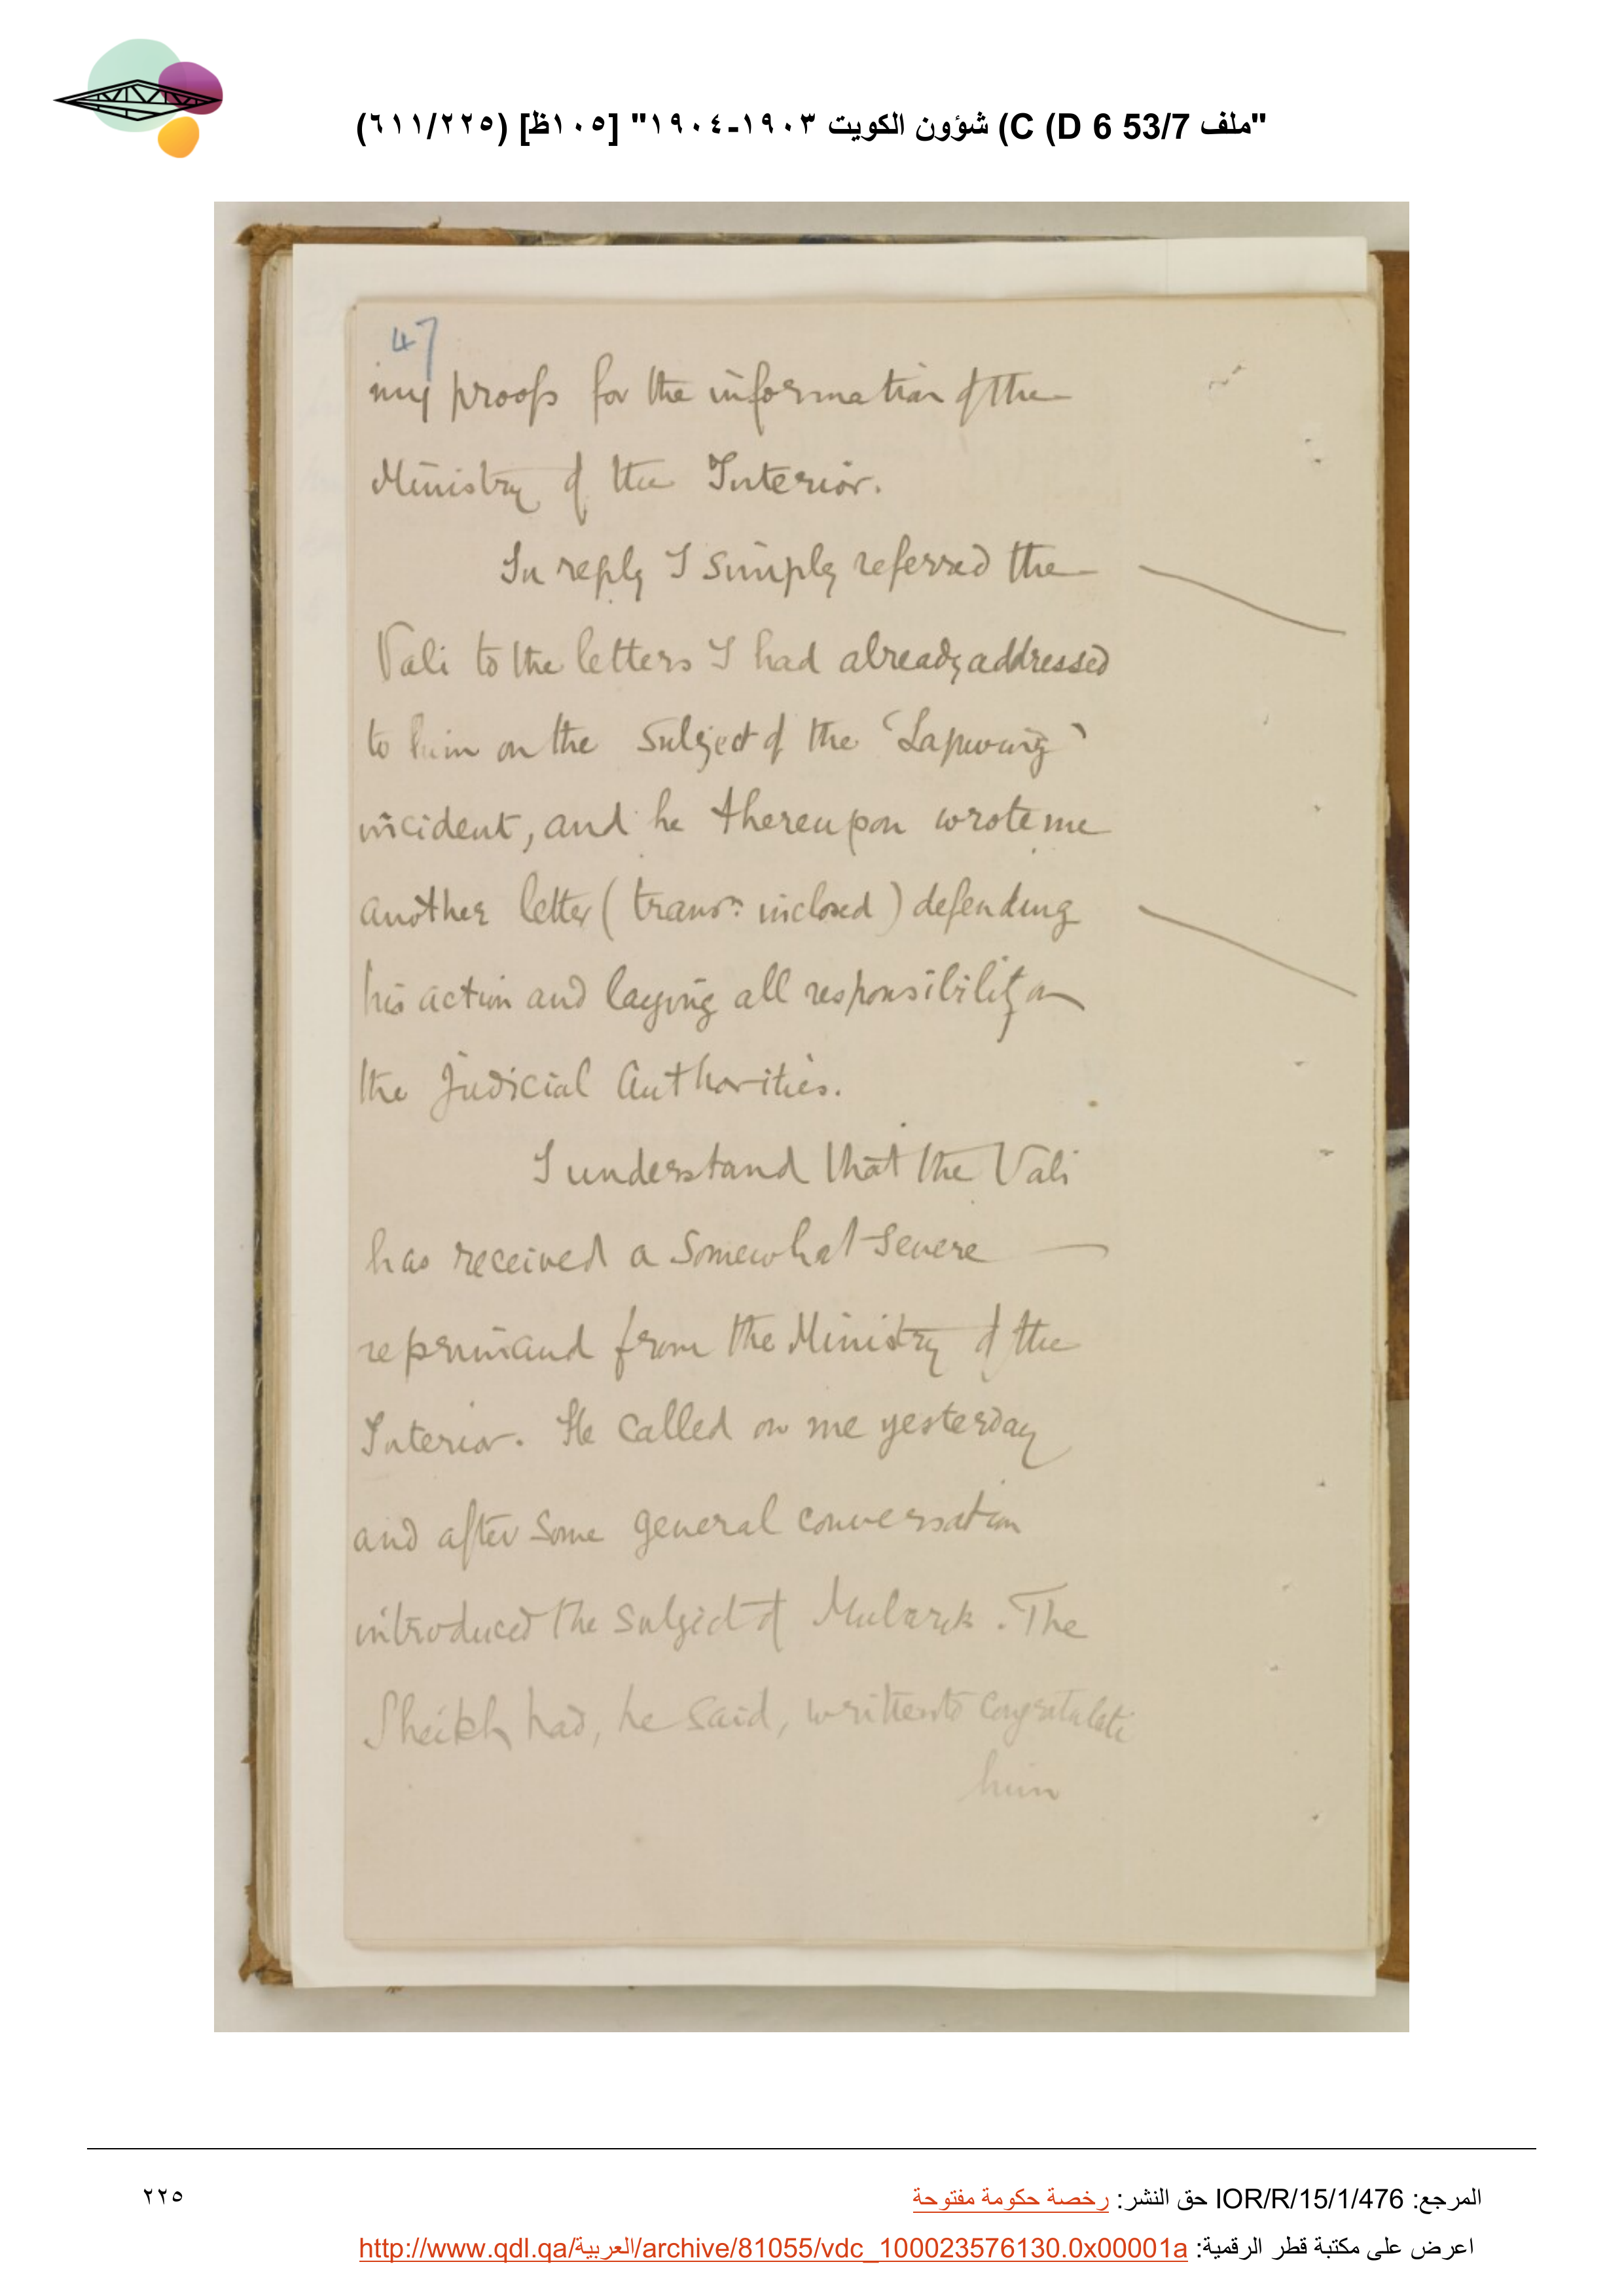 "ملف 53/7 C (D 6) شؤون الكويت ١٩٠٣-١٩٠٤" [١٠٥ظ] (٦١١/٢٢٥)
47
my proofs for the information of the
Ministry of the Interior.
In reply I simply referred the
Vali to the letters I had already addressed
to him on the subject of the 'Lapwing'
incident, and he thereupon wrote me
another letter (transn: inclosed) defending
his action and laying all responsibility on
the Judicial Authorities.
I understand that the Vali
has received a somewhat severe
reprimand from the Ministry of the
Interior. He called on me yesterday
and after some general conversation
introduced the subject of Mubarak. The
Sheikh had, he said, written to congratulate
him
المرجع: IOR/R/15/1/476 حق النشر: رخصة حكومة مفتوحة
٢٢٥
اعرض على مكتبة قطر الرقمية: http://www.qdl.qa/العربية/archive/81055/vdc_100023576130.0x00001a